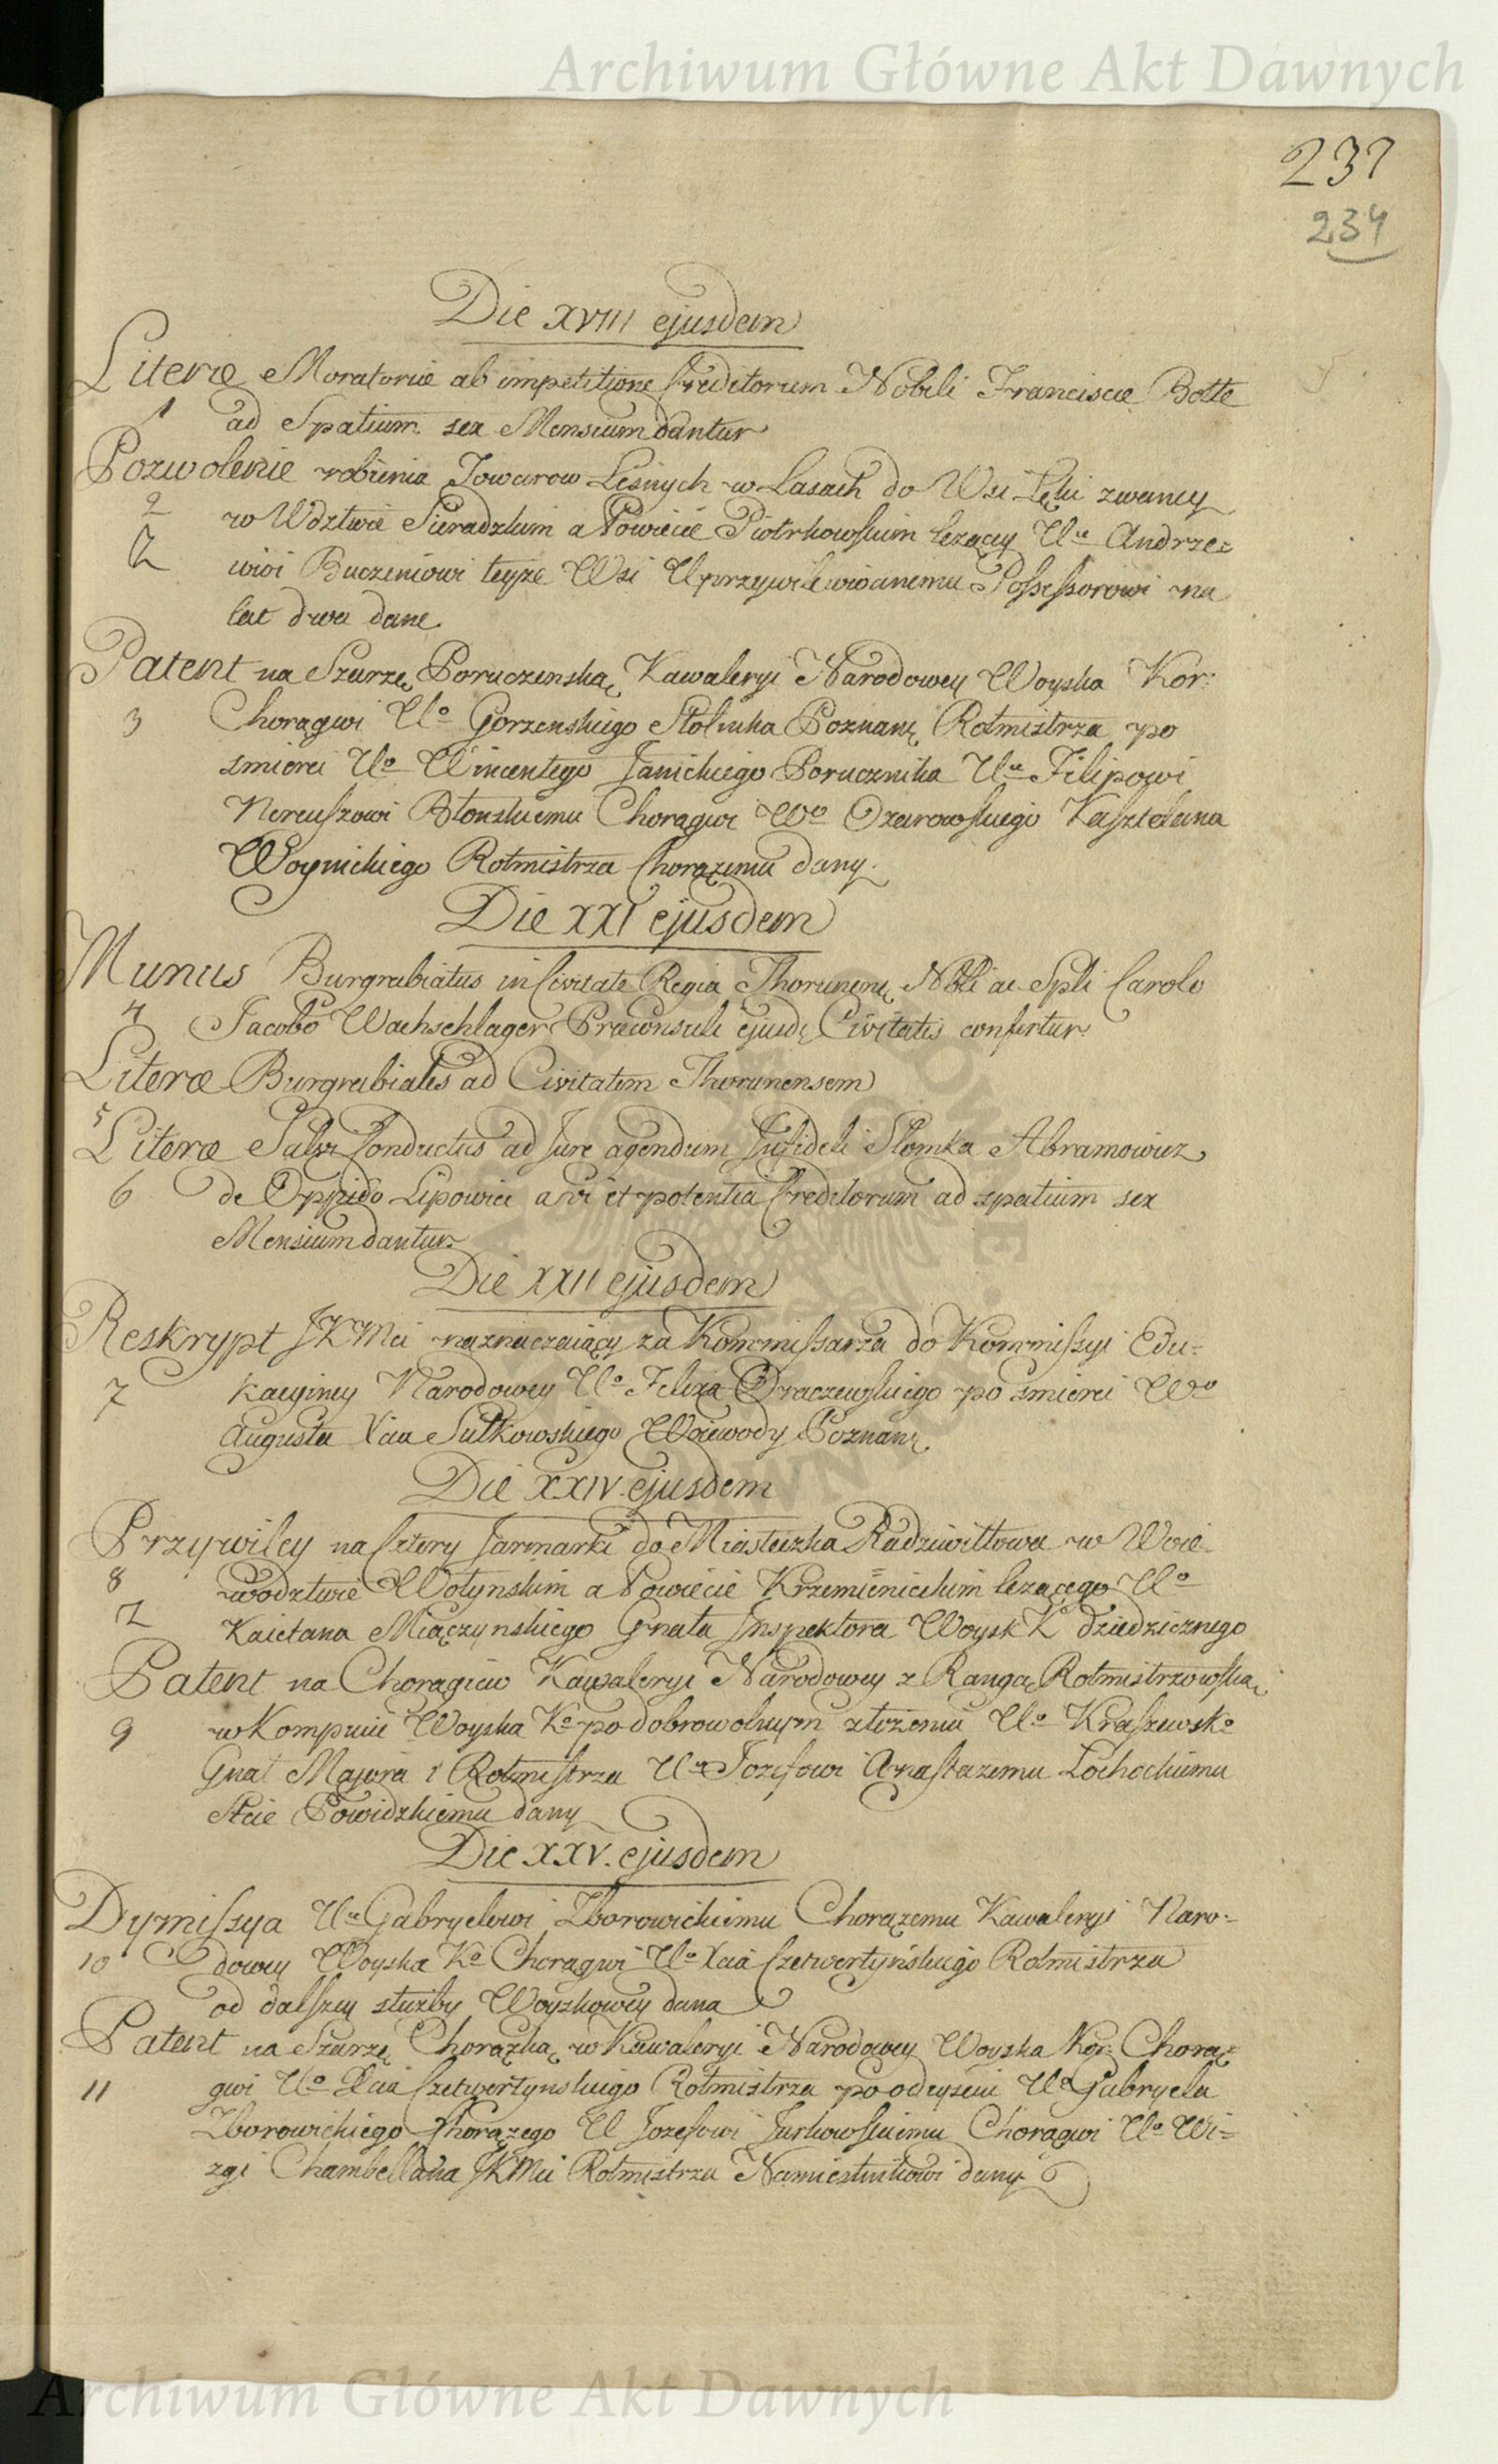 Archiwum Główne Akt Dawnych
237
234
Die XVIII ejusdem
Literæ Moratoriæ ab impetitione Creditorum Nobili Franciscæ Botte
1 ad Spatium sex Mensium dantur
Pozwolenie robienia Towarow Lesnych w Lasach do Wsi Łęki zwaney
2 w Wdztwie Sieradzkim a Powiecie Piotrkowskim lezącey Ur Andrze=
2 iwi Buczeniowi teyże Wsi Uprzywileiowanemu Possessorowi na
lat dwa dane
Patent na Szarzę Poruczenską Kawaleryi Narodowey Woyska Kor:
3 Chorągwi Uo Gorzenskiego Stolnika Poznanę Rotmistrza po
smierci Uo Wincentego Janickiego Porucznika Ur Filipowi
Nereuszowi Błonskiemu Chorągwi Wo Ozarowskiego Kasztelana
Woynickiego Rotmistrza Chorązemu dany.
Die XXI ejusdem
Munus Burgrabiatus in Civitate Regia Thorunenę Nbli ac Spli Carolo
4 Jacobo Wachschlager Præconsuli ejusdę Civitatis confertur
Literæ Burgrabiales ad Civitatem Thorunensem
5 Literæ Salvi Conductus ad Jure agendum Infideli Slomka Abramowicz
6 de Oppido Lipowiec a vi et potentia Creditorum ad spatium sex
Mensium dantur
Die XXII ejusdem
Reskrypt JKMci naznaczaiący za Kommissarza do Kommissyi Edu=
7 kacyiney Narodowey Uo Felixa Oraczewskiego po smierci Wo
Augusta Xcia Sułkowskiego Woiewody Poznanę
Die XXIV. ejusdem
Przywiley na Cztery Jarmarki do Miasteczka Radziwiłłowa w Woie
8 wodztwie Wołynskim a Powiecie Krzemienieckim lezącego Uo
2 Kaietana Miączynskiego Gnała Inspektora Woysk K dziedzicznego
Patent na Chorągiew Kawaleryi Narodowey z Rangą Rotmistrzowską
9 w Kompucie Woyska Ko po dobrowolnym złożeniu Uo Kraszewsko
Gnał Majora i Rotmistrza Ur Jozefowi Anastazemu Lochockiemu
Stcie Powidzkiemu dany
Die XXV. ejusdem
Dymissya Ur Gabryelowi Zborowickiemu Chorązemu Kawaleryi Naro=
10 dowey Woyska Ko Chorągwi Uo Xcia Czetwertyńskiego Rotmistrza
od dalszey słuzby Woyskowey dana
Patent na Szarzę Chorązką w Kawaleryi Narodowey Woyska Kor: Chorą=
11 gwi Uo Xcia Czetwertynskiego Rotmistrza po odeysciu Uo Gabryela
Zborowickiego Chorązego U Jozefowi Jurkowskiemu Chorągwi Uo Wi=
zgi Chambellana JKMci Rotmistrza Namiestnikowi dany
Archiwum Główne Akt Dawnych